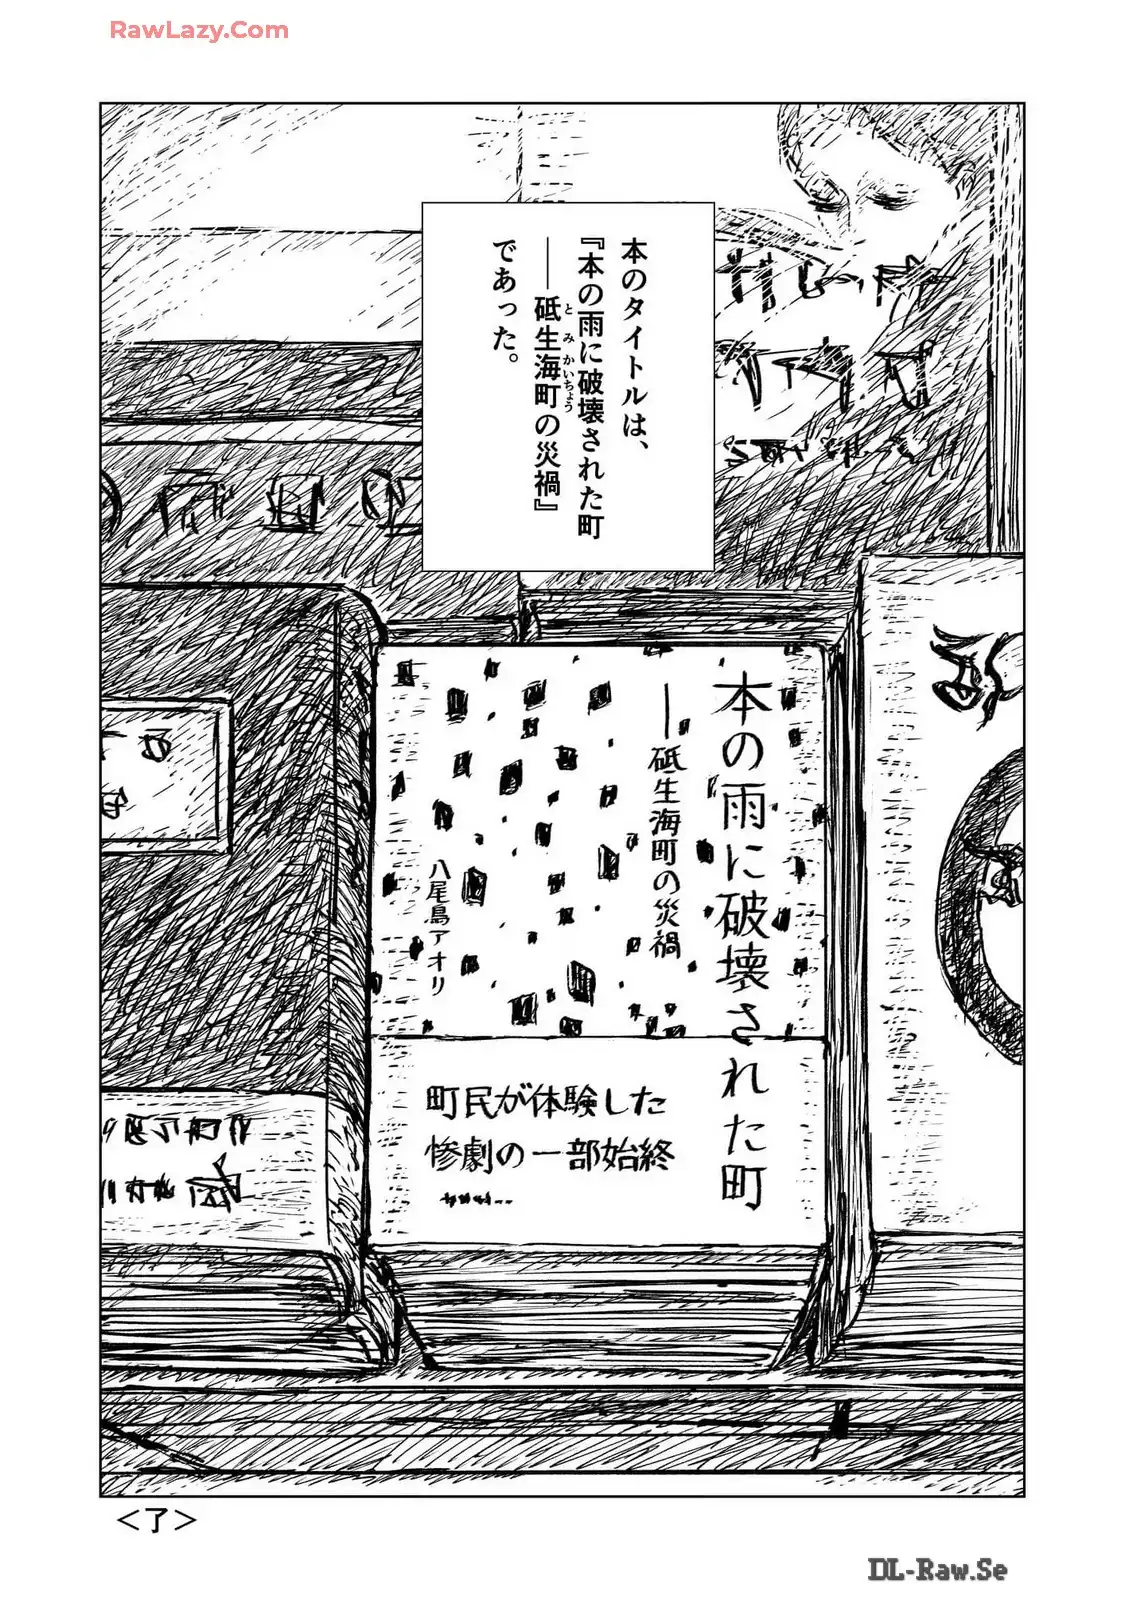 RawLazy.Com
本のタイトルは、
『本の雨に破壊された町
――砥生海町の災禍』
とみかいちょう
であった。
本の雨に破壊された町
――砥生海町の災禍
八尾鳥アオリ
町民が体験した
惨劇の一部始終
＜了＞
DL-Raw.Se